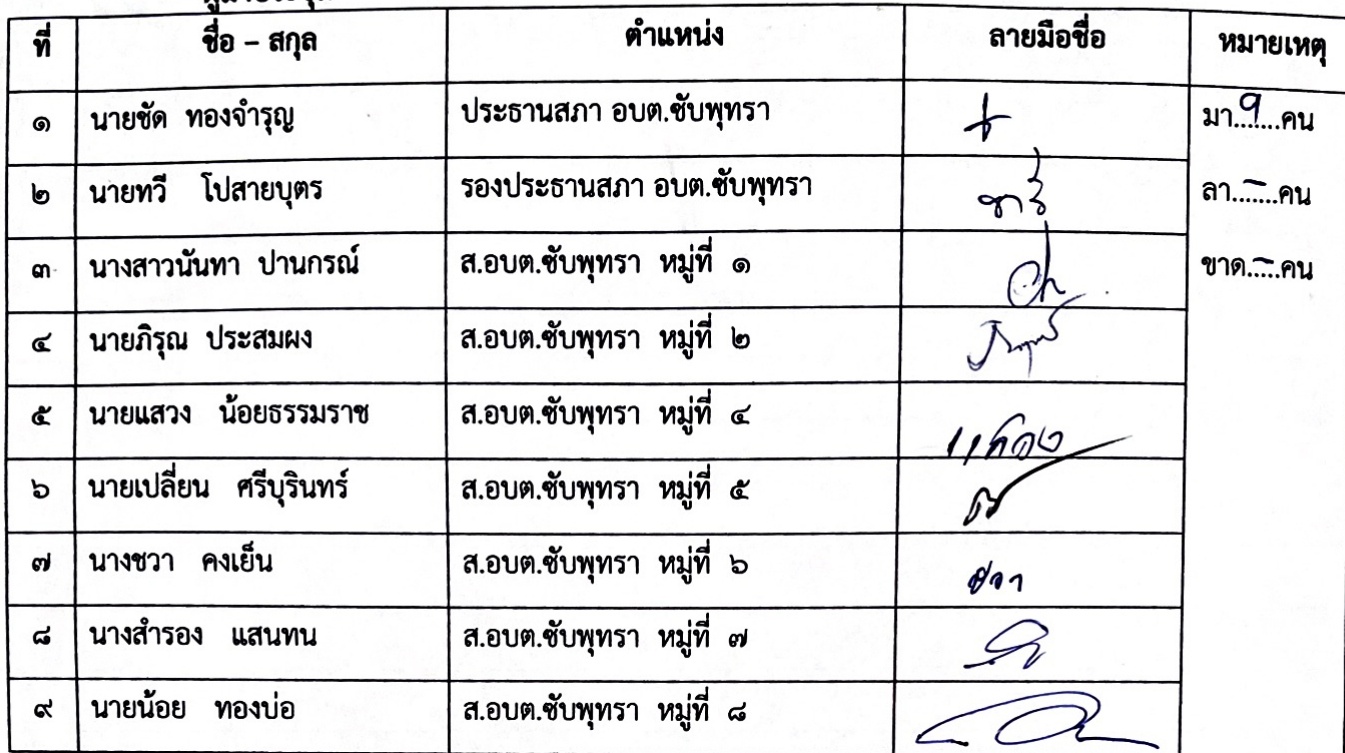 ที่ ชื่อ – สกุล ตำแหน่ง ลายมือชื่อ หมายเหตุ
๑ นายชัด ทองจำรุญ ประธานสภา อบต.ซับพุทรา มา..9...คน
๒ นายทวี โปสายบุตร รองประธานสภา อบต.ซับพุทรา ทวี ลา...–...คน
๓ นางสาวนันทา ปานกรณ์ ส.อบต.ซับพุทรา หมู่ที่ ๑ ขาด..–..คน
๔ นายภิรุณ ประสมผง ส.อบต.ซับพุทรา หมู่ที่ ๒
๕ นายแสวง น้อยธรรมราช ส.อบต.ซับพุทรา หมู่ที่ ๔ แสวง
๖ นายเปลี่ยน ศรีบุรินทร์ ส.อบต.ซับพุทรา หมู่ที่ ๕
๗ นางชวา คงเย็น ส.อบต.ซับพุทรา หมู่ที่ ๖ ชวา
๘ นางสำรอง แสนทน ส.อบต.ซับพุทรา หมู่ที่ ๗
๙ นายน้อย ทองบ่อ ส.อบต.ซับพุทรา หมู่ที่ ๘